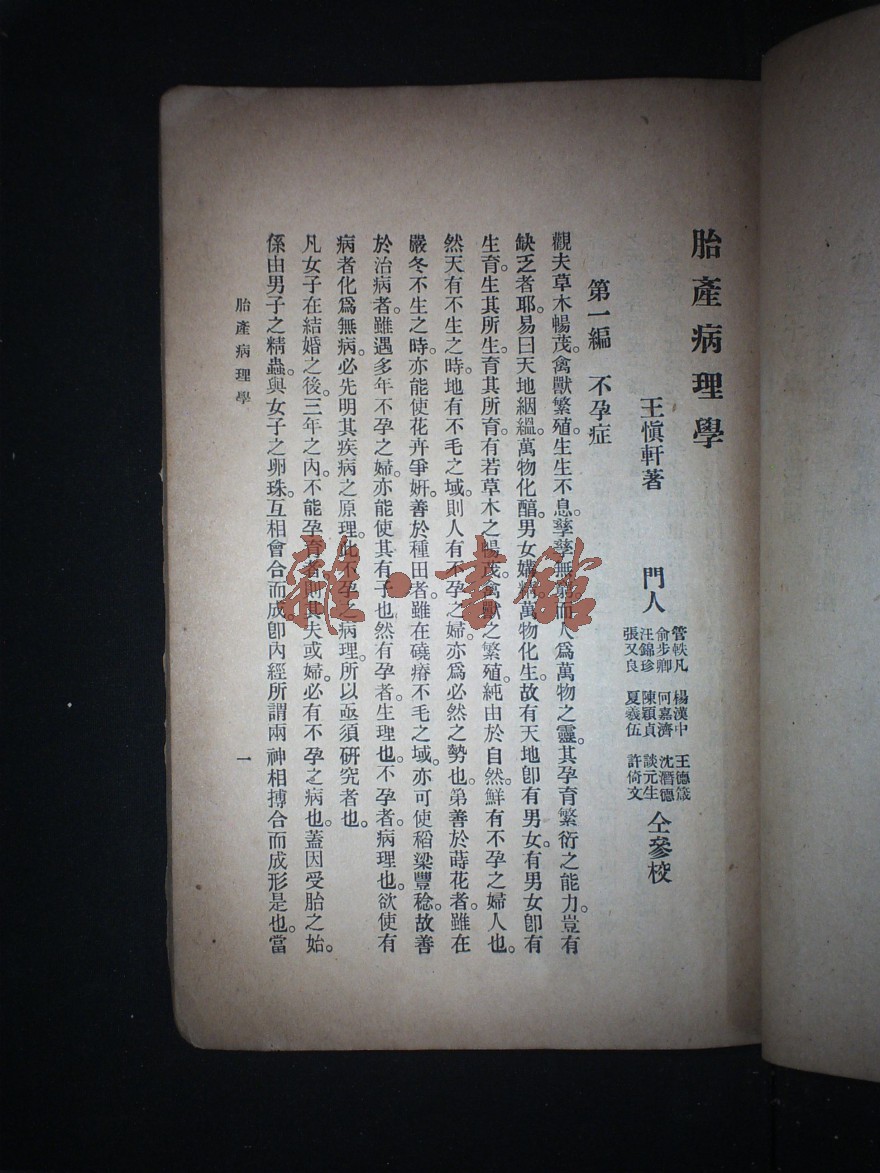 胎產病理學
王愼軒著
門人
管軼凡 楊漢中 王德箴
俞步卿 何嘉濟 沈潛德
汪錦珍 陳穎貞 談元生
張又良 夏羲伍 許倚文
仝參校
第一編 不孕症
觀夫草木暢茂。禽獸繁殖。生生不息。孳孳無窮。而人爲萬物之靈。其孕育繁衍之能力。豈有
缺乏者耶。易曰天地絪縕。萬物化醕。男女媾精。萬物化生。故有天地卽有男女。有男女卽有
生育。生其所生。育其所育。有若草木之暢茂。禽獸之繁殖。純由於自然。鮮有不孕之婦人也。
然天有不生之時。地有不毛之域。則人有不孕之婦。亦爲必然之勢也。第善於蒔花者。雖在
嚴冬不生之時。亦能使花卉爭妍。善於種田者。雖在磽瘠不毛之域。亦可使稻粱豐稔。故善
於治病者。雖遇多年不孕之婦。亦能使其有子也。然有孕者。生理也。不孕者。病理也。欲使有
病者化爲無病。必先明其疾病之原理。此不孕之病理。所以亟須研究者也。
凡女子在結婚之後。三年之內。不能孕育者。則其夫或婦。必有不孕之病也。蓋因受胎之始。
係由男子之精蟲。與女子之卵珠。互相會合而成。卽內經所謂兩神相搏。合而成形是也。當
胎產病理學
一
雜·書館